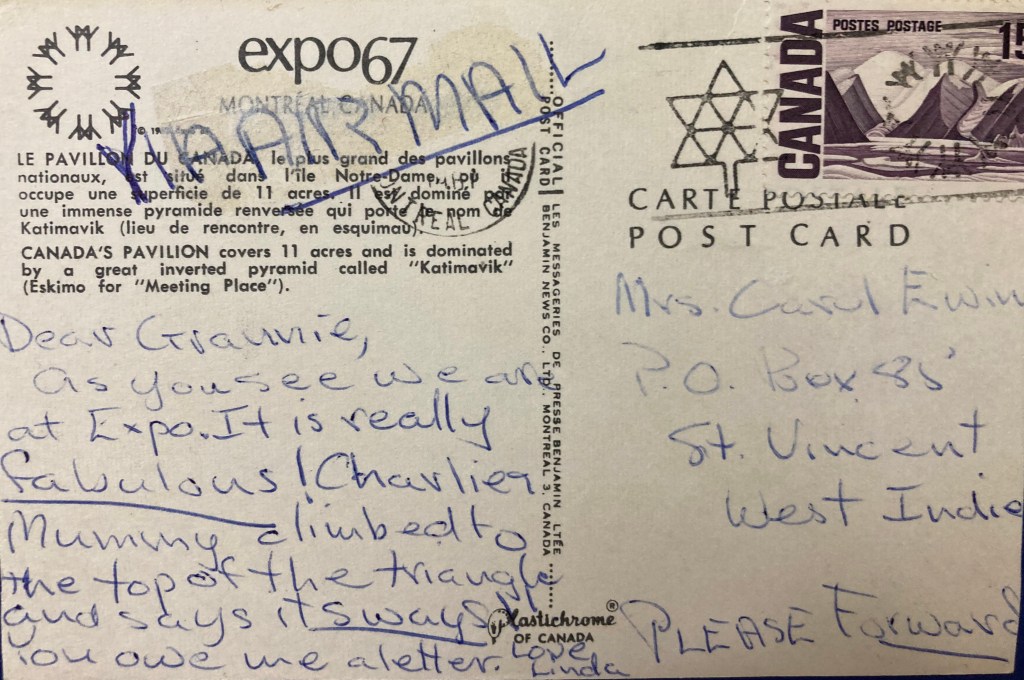 expo67
MONTRÉAL CANADA
VIA AIR MAIL
LE PAVILLON DU CANADA, le plus grand des pavillons
nationaux, est situé dans l'île Notre-Dame,
occupe une superficie de 11 acres. Il est dominé par
une immense pyramide renversée qui porte le nom de
Katimavik (lieu de rencontre, en esquimau).
CANADA'S PAVILION covers 11 acres and is dominated
by a great inverted pyramid called "Katimavik"
(Eskimo for "Meeting Place").
Dear Grannie,
As you see we are
at Expo. It is really
fabulous! Charlie &
Mummy climbed to
the top of the triangle
and says it sways.
You owe me a letter. Love
Linda
OFFICIAL POST CARD
LES MESSAGERIES DE PRESSE BENJAMIN LTÉE
BENJAMIN NEWS CO., LTD., MONTREAL 3, CANADA
Plastichrome®
OF CANADA
CANADA
POSTES POSTAGE
15
MONTRÉAL CANADA
CARTE POSTALE
POST CARD
Mrs. Carol Ewin
P.O. Box 85
St. Vincent
West Indie
PLEASE Forward